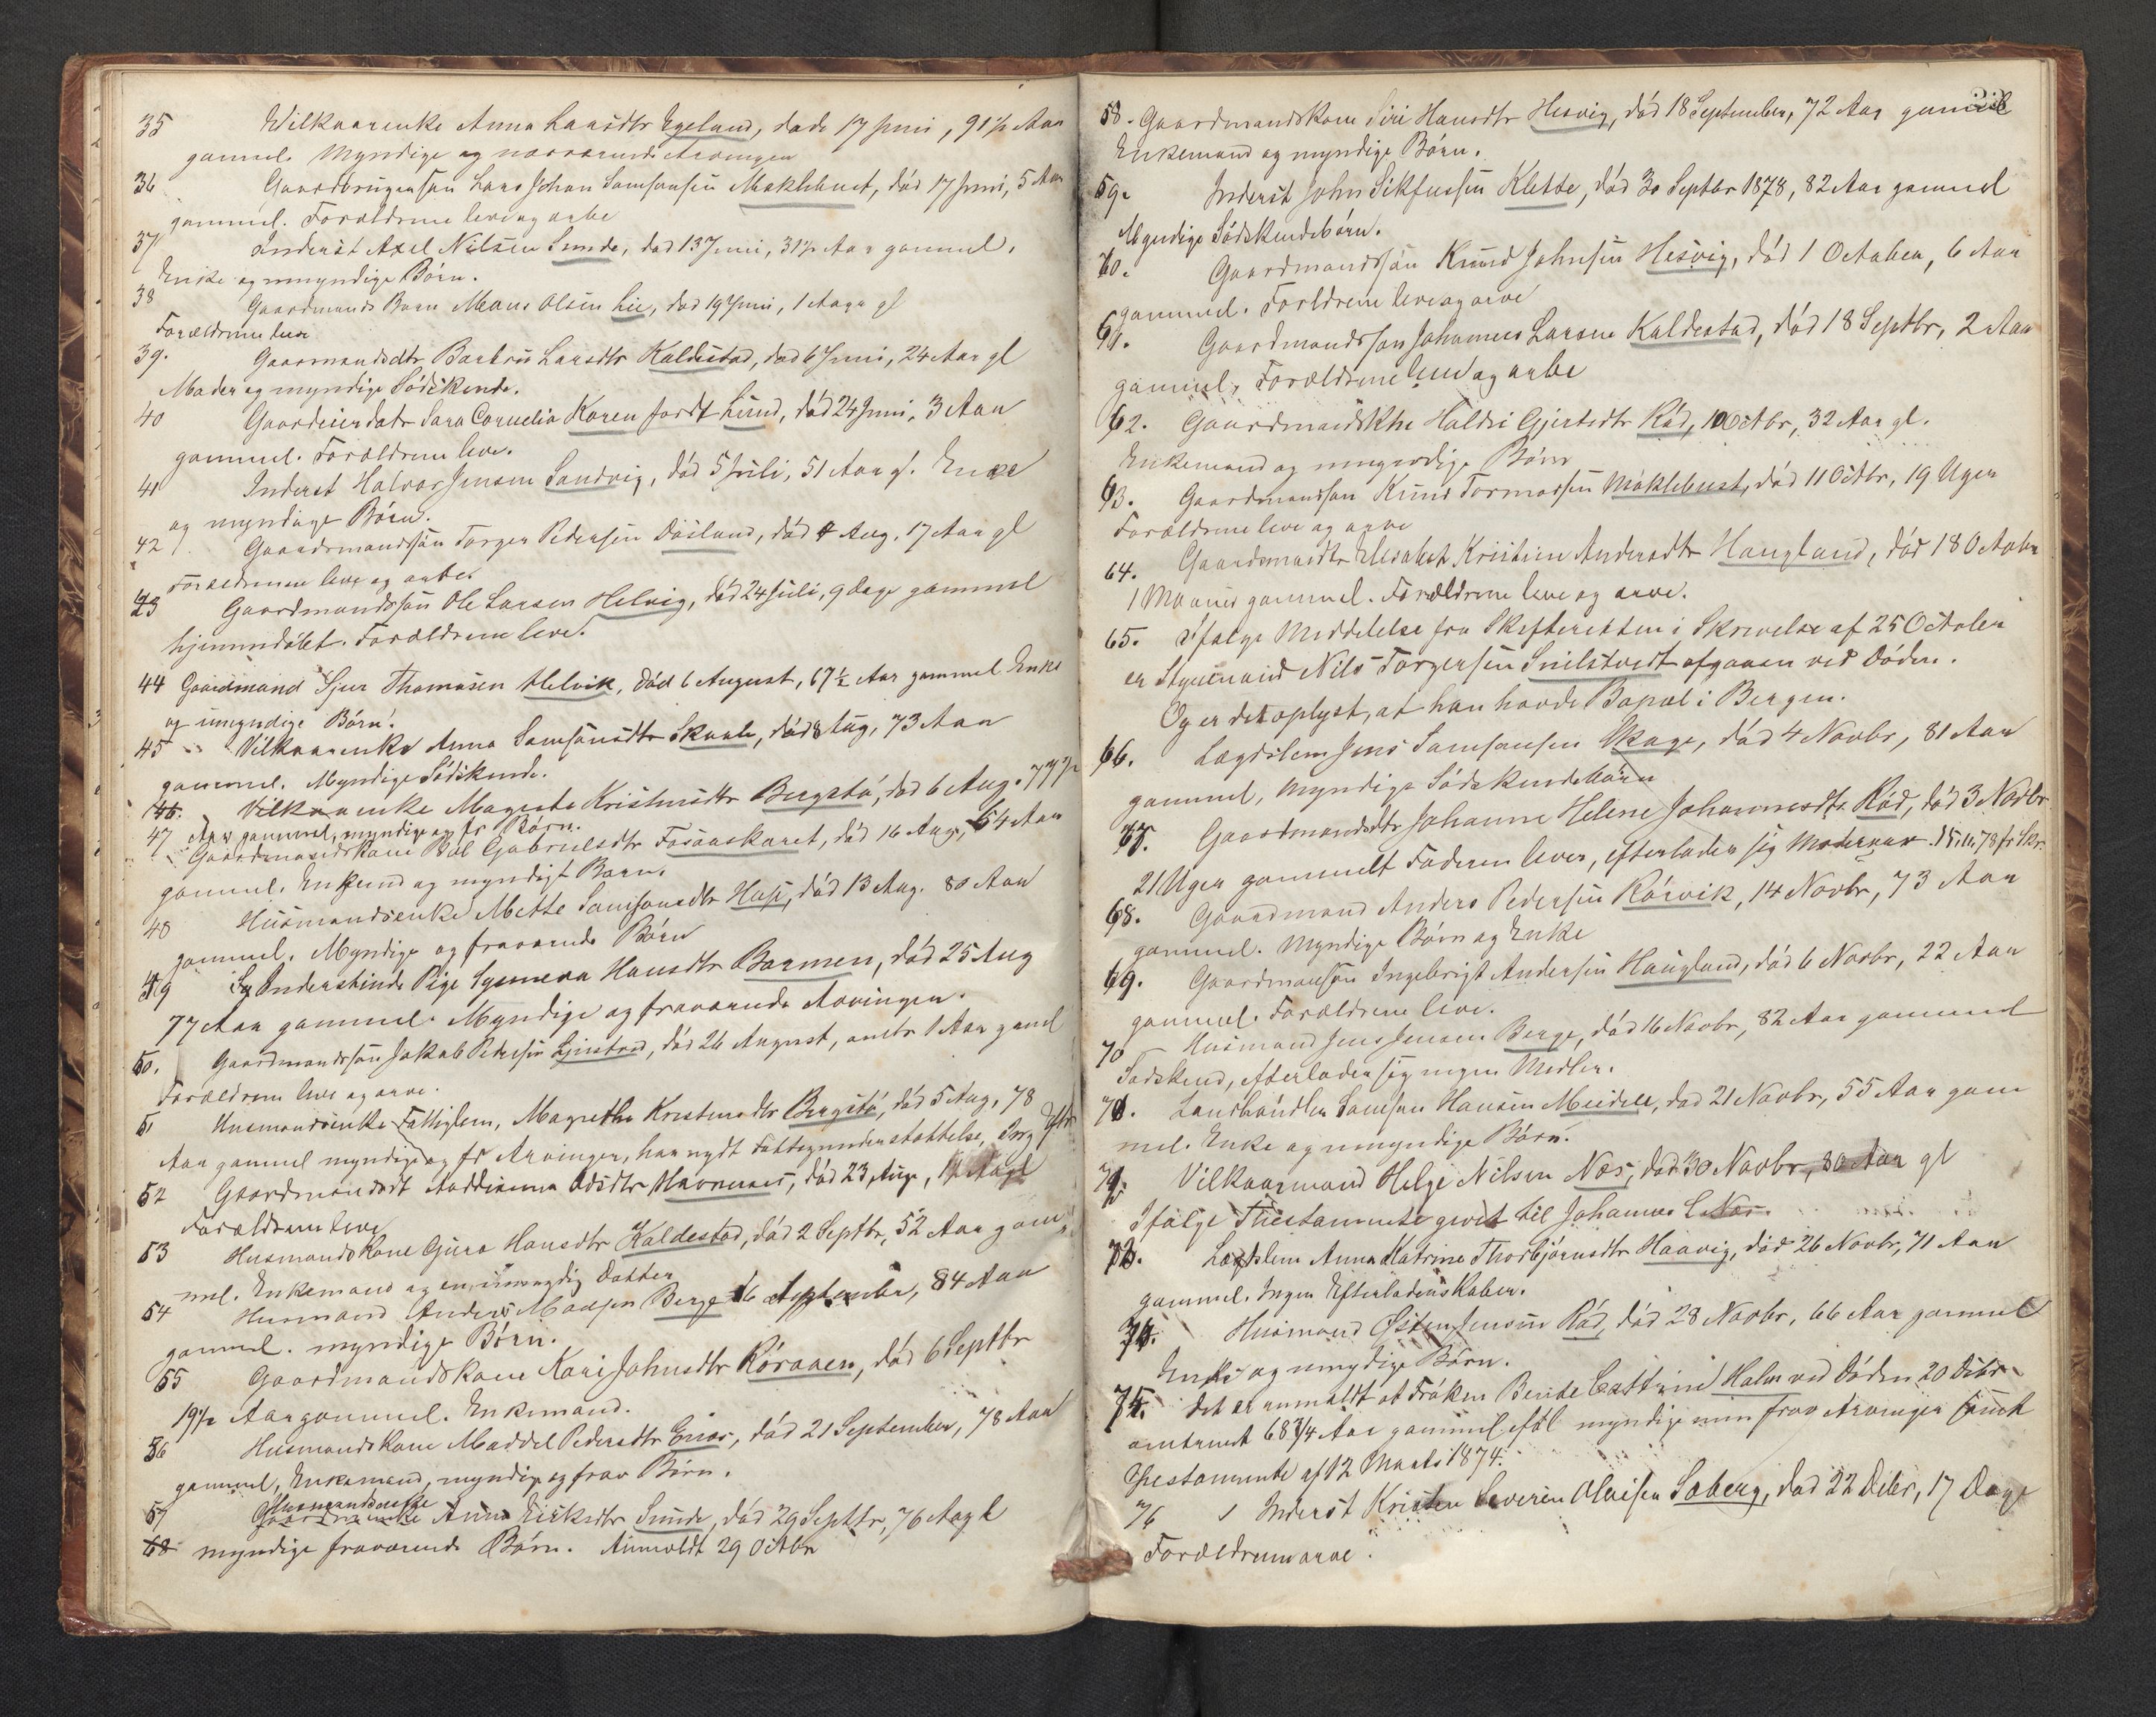 35 Vilkaarenke Anna Larsdtr Egeland, døde 17 Juni, 91½ Aar
gammel. Myndige og nærværende Arvinger
36 Gaardbrugersøn Lars Johan Samsonsen Møklebust, død 17 Juni, 5 Aar
gammel. Forældrene leve og arve
37 Inderst Axel Nilsen Sunde, død 13 Juni, 31½ Aar gammel.
Enke og umyndige Børn.
38 Gaardmands Barn Mons Olsen Lie, død 19 Juni, 1 Aar gl
Forældrene leve
39. Gaarmandsdtr Barbru Larsdtr Kaldestad, død 6 Juni, 24 Aar gl
Moder og myndige Sødskende.
40 Gaardeierdatr Sara Cornelia Karen fordt Lund, død 24 Juni, 3 Aar
gammel. Forældrene leve.
41 Inderst Halvor Jensen Sandvig, død 5 Juli, 51 Aar gl. Enke
og myndige Børn.
42 Gaardmandssøn Torger Pedersen Døsland, død 4 Aug. 17 Aar gl
Forældrene leve og arve.
43 Gaardmandssøn Ole Larsen Helvig, død 24 Juli, 9 Dage gammel
hjemmedøbt. Forældrene leve.
44 Gaardmand Sjur Thomasen Helvik, død 6 August, 67½ Aar gammel Enke
og umyndige Børn.
45 Vilkaarenke Anna Samsonsdtr Skaale, død 8 Aug, 73 Aar
gammel. Myndige Sødskende.
46. Vilkaarenke Magrete Kristensdtr Bergstø, død 6 Aug. 77½
Aar gammel, myndige og fr Børn.
47 Gaardmandskone Bol Gabrielsdtr Fosaaskaret, død 16 Aug, 64 Aar
gammel. Enkemd og myndigt Barn.
48 Husmandsenke Mette Samsonsdtr Huse, død 13 Aug. 80 Aar
gammel. Myndige og fraværende Børn
49 Inderstinde Pige Synneva Hansdtr Barmen, død 25 Aug
77 Aar gammel. Myndige og fraværende Arvinger.
50. Gaardmandssøn Jakob Pedersen Leirstad, død 26 August, omtr 1 Aar gamel
Forældrene leve og arve.
51 Husmandsenke Fattiglem, Magrethe Kristensdtr Bergstø, død 5 Aug, 78
Aar gammel myndige og fr Arvinger, har nydt Fattigunderstøttelse,
52 Gaardmandsdt Odsdtr Havnenæs, død 23 Aug,
Forældrene leve
53 Husmandskone Gjura Hansdtr Kaldestad, død 2 Septbr, 52 Aar gam
mel. Enkemand og en umyndig Datter
54 Husmand Anders Madsen Berge 16 September, 84 Aar
gammel. myndige Børn.
55 Gaardmandskone Kari Johnsdtr Røraaen, død 6 Septbr
19½ Aar gammel. Enkemand.
56 Husmandskone Maddel Pedersdtr Enæs, død 21 September, 78 Aar
gammel, Enkemand, myndige og frav Børn.
57 Husmandsenke Anna Eriksdtr Sunde, død 29 Septbr, 76 Aar gl
58 myndige fraværende Børn. Anmeldt 29 Octbr
58. Gaardmandskone Siri Hansdtr Hesvig, død 18 September, 72 Aar gammel
Enkemand og myndige Børn.
59. Inderst John Sikfussen Klette, død 30 Septbr 1878, 82 Aar gammel
Myndige Sødskendebørn.
60. Gaardmandssøn Knud Johnsen Hesvig, død 1 October, 6 Aar
gammel. Forldrene leve og arve
61. Gaardmandssøn Johannes Larsen Kaldestad, død 18 Septbr, 2 Aar
gammel, Forældrene leve og arve
62. Gaardmandskne Haldri Gjertsdtr Rød, 10 Octbr, 32 Aar gl.
Enkemand og umyndige Børn
63. Gaardmandssøn Knud Tormodsen Møklebust, død 11 Octbr, 19 Uger
Forældrene leve og arve
64. Gaardmandtr Elisabet Kristine Andersdtr Haugland, død 18 Octobr
1 Maaned gammel. Forældrene leve og arve.
65. Ifølge Meddelelse fra Skifteretten i Skrivelse af 25 October
er Styrmand Nils Torgersen Snilstvedt afgaaen ved Døden.
Og er det oplyst, at han havde Bopæl i Bergen.
66. Lægdslem Jens Samsonsen Skage, død 4 Novbr, 81 Aar
gammel, Myndige Sødskendebørn
67. Gaardmandsdtr Johanne Helene Johannesdtr Rød, død 3 Novbr.
21 Uger gammelt Faderen lever, efterlader sig Moderarv.
68. Gaardmand Anders Pedersen Rørvik, 14 Novbr, 73 Aar
gammel. Myndige Børn og Enke
69. Gaardmansøn Ingebrigt Andersen Haugland, død 6 Novbr, 22 Aar
gammel. Forældrene leve.
70 Husmand Jens Jensen Berge, død 16 Novbr, 82 Aar gammel
Sødskend, efterlader sig ingen Midler.
71. Landhandler Samson Hansen Meidell, død 21 Novbr, 55 Aar gam
mel. Enke og umyndige Børn.
72. Vilkaarmand Helge Nilsen Næs, død 30 Novbr, 80 Aar gl
Ifølge Thestamente givet til Johannes L Næs.
73. Lægdslem Anna Katrine Thorbjørnsdtr Haavig, død 26 Novbr, 71 Aar
gammel. Ingen Efterladenskaber.
74. Husmand Østen Jensen Rød, død 28 Novbr, 66 Aar gammel
Enke og umydige Børn.
75. Det er anmeldt at Frøken Bendte Cattrine Holm ved Døden 20 Debr
omtrent 68¾ Aar gammel myndige men frav Arvinger samt
Thestamente af 12 Marts 1874.
76 Inderst Kristen Severin Olaisen Soberg, død 22 Debr, 17 Dage
Forældrene arve.